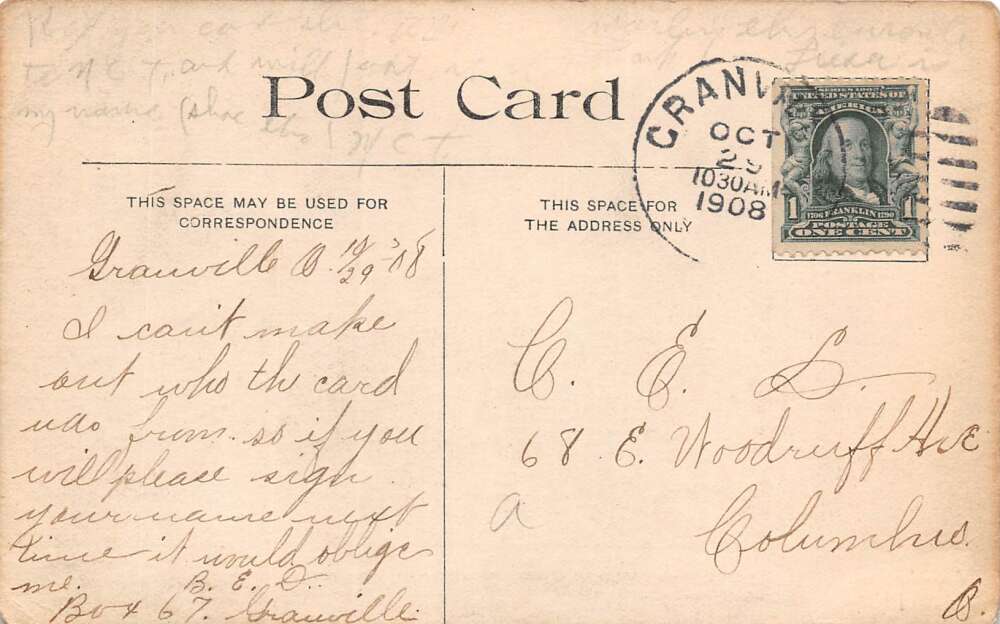 my name
N C T
Post Card
GRANV
OCT
29
1030AM
1908
SERIES 1902
UNITED STATES OF
AMERICA
1 1706 FRANKLIN 1790 1
POSTAGE
ONE CENT
THIS SPACE MAY BE USED FOR
CORRESPONDENCE
Granville O. 10/29 '08
I can't make
out who the card
was from. so if you
will please sign
your name next
time it would oblige
me. B. E. D.
Box 67. Granville
THIS SPACE FOR
THE ADDRESS ONLY
C. E. L.
68 E. Woodruff Ave
a
Columbus
O.